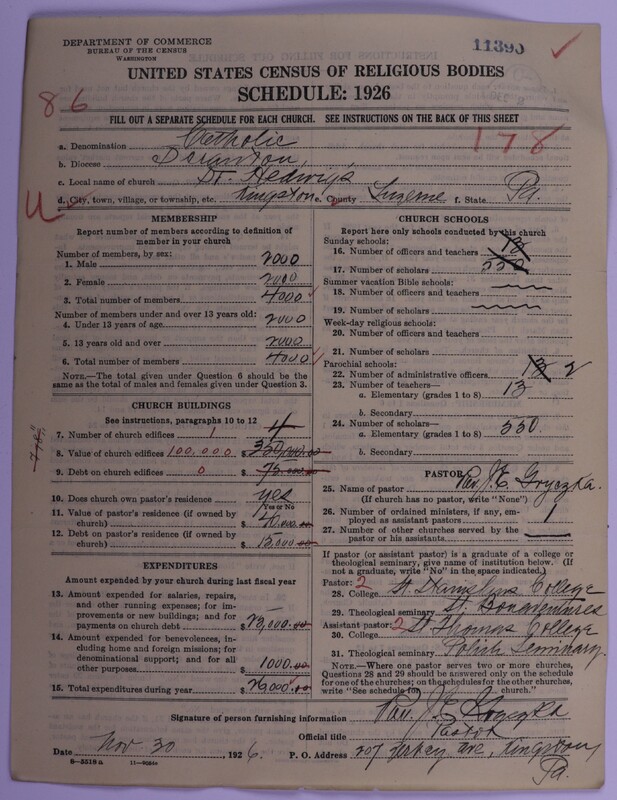 DEPARTMENT OF COMMERCE
BUREAU OF THE CENSUS
WASHINGTON
11390
UNITED STATES CENSUS OF RELIGIOUS BODIES
SCHEDULE: 1926
86
FILL OUT A SEPARATE SCHEDULE FOR EACH CHURCH. SEE INSTRUCTIONS ON THE BACK OF THIS SHEET
178
a. Denomination Catholic
b. Diocese Scranton,
c. Local name of church St. Hedwigs
U d. City, town, village, or township, etc. Kingston e. County Luzerne f. State Pa.
MEMBERSHIP
Report number of members according to definition of member in your church
Number of members, by sex:
1. Male 2000
2. Female 2000
3. Total number of members 4000
Number of members under and over 13 years old:
4. Under 13 years of age 2000
5. 13 years old and over 2000
6. Total number of members 4000
NOTE.—The total given under Question 6 should be the same as the total of males and females given under Question 3.
CHURCH BUILDINGS
See instructions, paragraphs 10 to 12
7. Number of church edifices 1 4
8. Value of church edifices 100,000 $ 350,000.00
9. Debt on church edifices 0 $ 75.000.00
10. Does church own pastor's residence yes
Yes or No
11. Value of pastor's residence (if owned by church) $ 40.000.00
12. Debt on pastor's residence (if owned by church) $ 15.000.00
EXPENDITURES
Amount expended by your church during last fiscal year
13. Amount expended for salaries, repairs, and other running expenses; for improvements or new buildings; and for payments on church debt $ 25,000.00
14. Amount expended for benevolences, including home and foreign missions; for denominational support; and for all other purposes $ 1000.00
15. Total expenditures during year $ 26,000.00
CHURCH SCHOOLS
Report here only schools conducted by this church
Sunday schools:
16. Number of officers and teachers 13
17. Number of scholars 550
Summer vacation Bible schools:
18. Number of officers and teachers
19. Number of scholars
Week-day religious schools:
20. Number of officers and teachers
21. Number of scholars
Parochial schools:
22. Number of administrative officers 13 2
23. Number of teachers—
a. Elementary (grades 1 to 8) 13
b. Secondary
24. Number of scholars—
a. Elementary (grades 1 to 8) 550
b. Secondary
PASTOR
25. Name of pastor Rev. J. E. Gryczka.
(If church has no pastor, write "None")
26. Number of ordained ministers, if any, employed as assistant pastors 1
27. Number of other churches served by the pastor or his assistants
If pastor (or assistant pastor) is a graduate of a college or theological seminary, give name of institution below. (If not a graduate, write "No" in the space indicated.)
Pastor: 2
28. College St. Stanislaus College
29. Theological seminary St. Bonaventures
Assistant pastor: 2
30. College St Thomas College
31. Theological seminary Polish Seminary.
NOTE.—Where one pastor serves two or more churches, Questions 28 and 29 should be answered only on the schedule for one of the churches; on the schedules for the other churches, write "See schedule for church."
Signature of person furnishing information Rev. J. E. Gryczka
Official title Pastor
Date Nov 30, 1926. P. O. Address 207 ave, Kingston,
Pa.
8—5518a 11—9054a